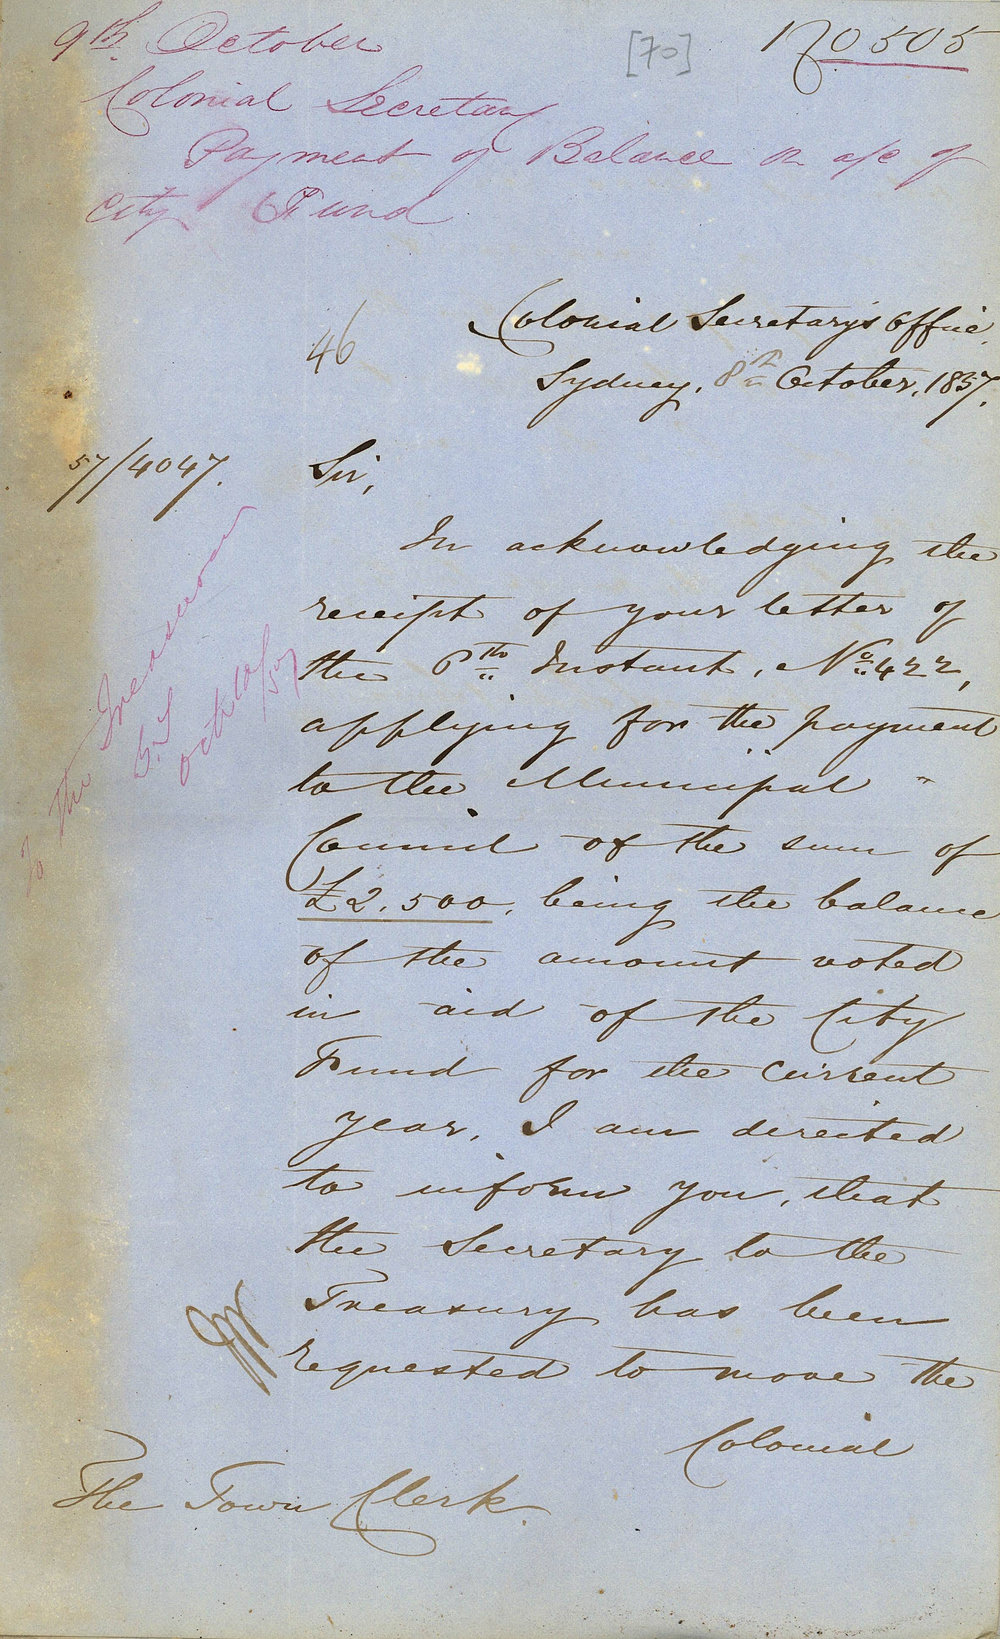 9th October
[70]
No 505
Colonial Secretary
Payment of Balance on a/c of
City Fund
46
Colonial Secretary's Office,
Sydney, 8th October, 1857.
57/4047.
Sir,
In acknowledging the
receipt of your letter of
the 6th Instant, No 422,
applying for the payment
to the Municipal "
Council of the sum of
£2,500, being the balance
of the amount voted
in aid of the City
Fund for the current
year, I am directed
to inform you, that
the Secretary to the
Treasury has been
requested to move the
Colonial
The Town Clerk.
To The Treasurer
Oct 10/57